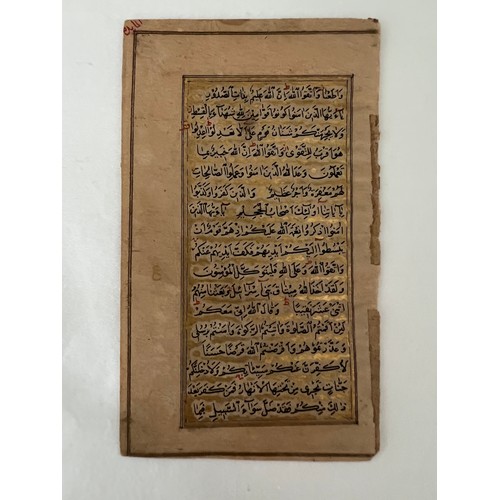 واطعنا واتقوا الله ان الله عليم بذات الصدور
ياءيها الذين امنوا كونوا قوامين لله شهداء بالقسط
ولا يجرمنكم شنان قوم على الا تعدلوا اعدلوا
هو اقرب للتقوى واتقوا الله ان الله خبير بما
تعملون وعد الله الذين امنوا وعملوا الصالحات
لهم مغفرة واجر عظيم والذين كفروا وكذبوا
باياتنا اولئك اصحاب الجحيم ياءيها الذين
امنوا اذكروا نعمة الله عليكم اذ هم قوم ان
يبسطوا اليكم ايديهم فكف ايديهم عنكم
واتقوا الله وعلى الله فليتوكل المؤمنون
ولقد اخذ الله ميثاق بنى اسرائيل وبعثنا منهم
اثنى عشر نقيبا وقال الله انى معكم
لئن اقمتم الصلوة واتيتم الزكوة وامنتم برسلى
وعزرتموهم واقرضتم الله قرضا حسنا
لاكفرن عنكم سيئاتكم ولادخلنكم
جنات تجرى من تحتها الانهار فمن كفر بعد
ذلك منكم فقد ضل سواء السبيل فبما